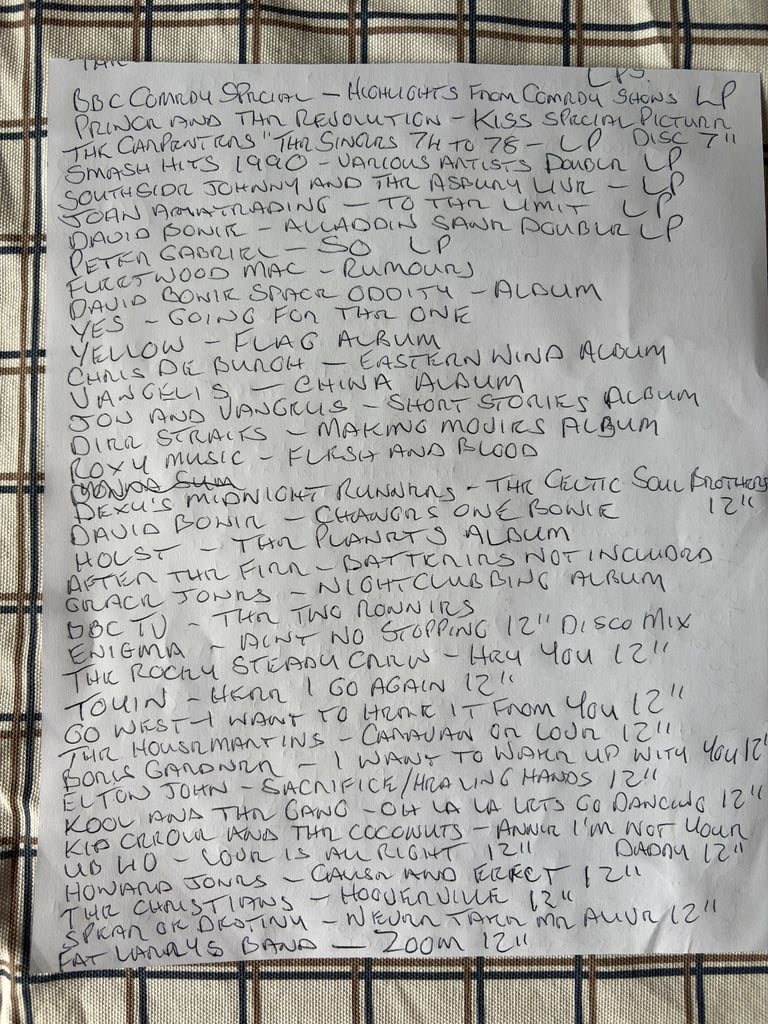 LPS.
BBC COMEDY SPECIAL - HIGHLIGHTS FROM COMEDY SHOWS LP
PRINCE AND THE REVOLUTION - KISS SPECIAL PICTURE
DISC 7"
THE CARPENTERS "THE SINGLES 74 TO 78 - LP
SMASH HITS 1990 - VARIOUS ARTISTS DOUBLE LP
SOUTHSIDE JOHNNY AND THE ASBURY LIVE - LP
JOAN ARMATRADING - TO THE LIMIT LP
DAVID BOWIE - ALLADDIN SANE DOUBLE LP
PETER GABRIEL - SO LP
FLEETWOOD MAC - RUMOURS
DAVID BOWIE SPACE ODDITY - ALBUM
YES - GOING FOR THE ONE
YELLOW - FLAG ALBUM
CHRIS DE BURGH - EASTERN WIND ALBUM
VANGELIS - CHINA ALBUM
JON AND VANGELIS - SHORT STORIES ALBUM
DIRE STRAITS - MAKING MOVIES ALBUM
ROXY MUSIC - FLESH AND BLOOD
DONNA SUM
DEXY'S MIDNIGHT RUNNERS - THE CELTIC SOUL BROTHERS
12"
DAVID BOWIE - CHANGES ONE BOWIE
HOLST - THE PLANETS ALBUM
AFTER THE FIRE - BATTERIES NOT INCLUDED
GRACE JONES - NIGHTCLUBBING ALBUM
BBC TV - THE TWO RONNIES
ENIGMA - AINT NO STOPPING 12" DISCO MIX
THE ROCKY STEADY CREW - HEY YOU 12"
TOUIN - HERE I GO AGAIN 12"
GO WEST - I WANT TO HEAR IT FROM YOU 12"
THE HOUSEMARTINS - CARAVAN OF LOVE 12"
BORIS GARDNER - I WANT TO WAKE UP WITH YOU 12"
ELTON JOHN - SACRIFICE/HEALING HANDS 12"
KOOL AND THE GANG - OH LA LA LETS GO DANCING 12"
KID CREOLE AND THE COCONUTS - ANNIE I'M NOT YOUR
DADDY 12"
UB 40 - LOVE IS ALL RIGHT 12"
HOWARD JONES - CAUSE AND EFFECT 12"
THE CHRISTIANS - HOOVERVILLE 12"
SPEAR OF DESTINY - NEVER TAKE ME ALIVE 12"
FAT LARRYS BAND - ZOOM 12"